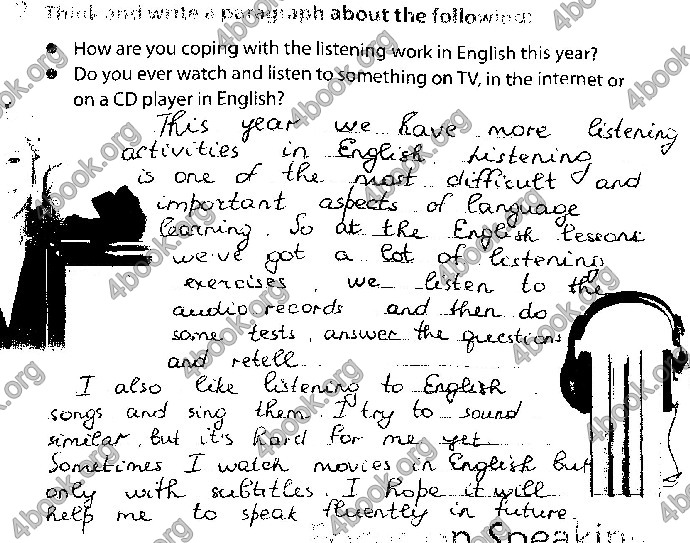 2 Think and write a paragraph about the following:
How are you coping with the listening work in English this year?
Do you ever watch and listen to something on TV, in the internet or
on a CD player in English?
This year we have more listening
activities in English. Listening
is one of the most difficult and
important aspects of language
learning. So at the English lessons
we've got a lot of listening
exercises, we listen to the
audio records and then do
some tests, answer the questions
and retell
I also like listening to English
songs and sing them. I try to sound
similar, but it's hard for me yet
Sometimes I watch movies in English but
only with subtitles. I hope it will
help me to speak fluently in future
on Speakin
4book.org